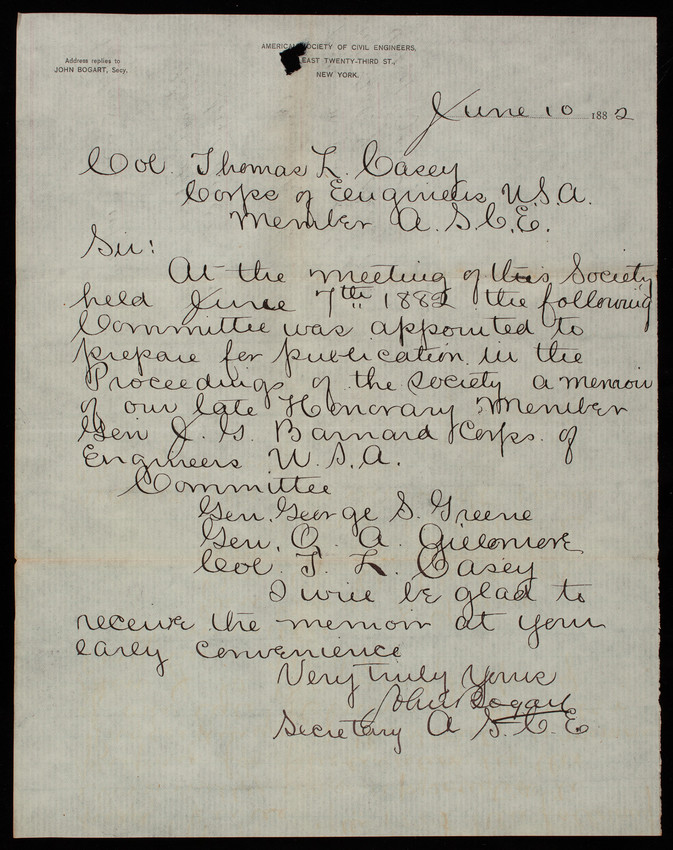 Address replies to
JOHN BOGART, Secy.
SOCIETY OF CIVIL ENGINEERS,
EAST TWENTY-THIRD ST.,
NEW YORK.
June 10 1882
Col. Thomas L. Casey
Corps of Engineers U.S.A.
Member A.S.C.E.
Sir:
At the meeting of this Society
held June 7th 1882 the following
Committee was appointed to
prepare for publication in the
Proceedings of the Society a memoir
of our late Honorary Member
Gen J. G. Barnard Corps. of
Engineers U.S.A.
Committee
Gen. George S. Greene
Gen. Q. A. Gillmore
Col T. L. Casey
I will be glad to
receive the memoir at your
early convenience
Very truly yours
John Bogart
Secretary A S.C.E